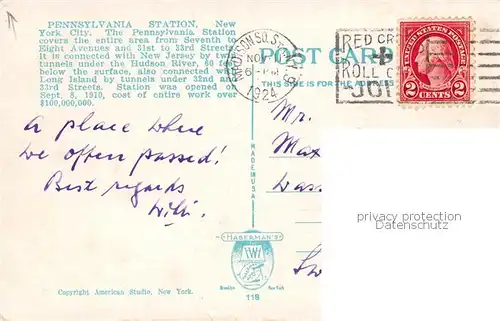 PENNSYLVANIA STATION, New
York City. The Pennsylvania Station
covers the entire area from Seventh to
Eight Avenues and 31st to 33rd Streets.
It is connected with New Jersey by two
tunnels under the Hudson River, 60 feet
below the surface, also connected with
Long Island by tunnels under 32nd and
33rd Streets. Station was opened on
Sept. 8, 1910, cost of entire work over
$100,000,000.
POST CARD
THIS SIDE IS FOR ADDRESS
MADISON SQ. STA.
NOV
6-PM
192
RED CROSS
ROLL CALL
JOIN
UNITED STATES POSTAGE
2 CENTS 2
A place where
we often passed!
Best regards
Willi.
Mr.
Max
Wass
Sw
MADE IN USA
HABERMAN'S
Brooklyn New York
118
Copyright American Studio, New York.
privacy protection
Datenschutz